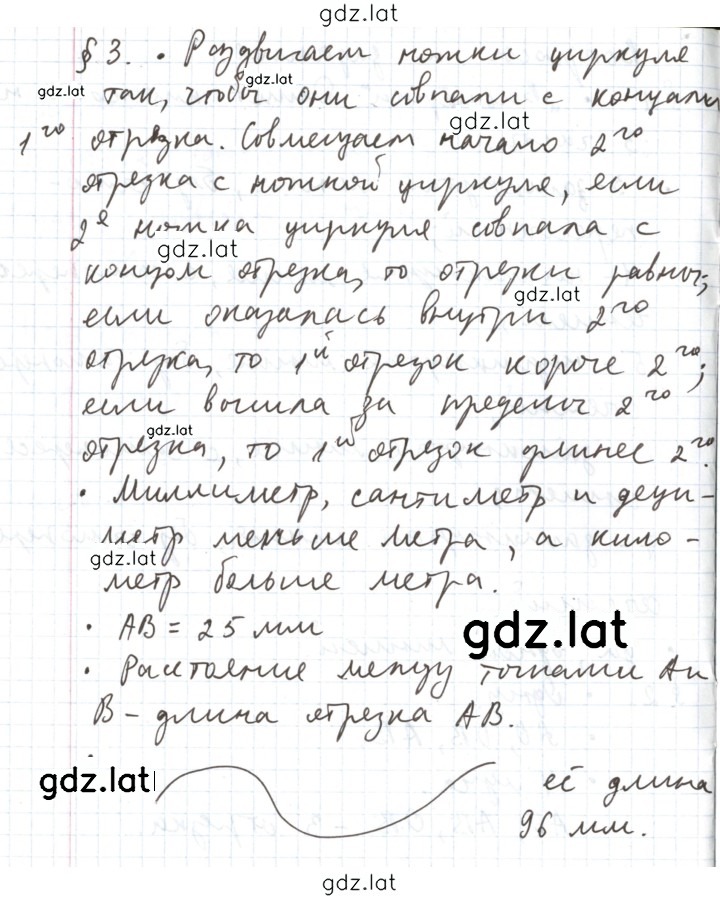 gdz.lat
§ 3. • Раздвигаем ножки циркуля
gdz.lat
так, чтобы они совпали с концами
gdz.lat
gdz.lat
1го отрезка. Совмещаем начало 2го
отрезка с ножкой циркуля, если
2я ножка циркуля совпала с
gdz.lat
концом отрезка, то отрезки равны;
gdz.lat
если оказалась внутри 2го
отрезка, то 1й отрезок короче 2го;
если вышла за пределы 2го
gdz.lat
отрезка, то 1й отрезок длинее 2го.
• Миллиметр, сантиметр и деци-
метр меньше метра, а кило-
gdz.lat
метр больше метра.
• AB = 25 мм
gdz.lat
• Расстояние между точками A и
B - длина отрезка AB.
gdz.lat
её длина
96 мм.
gdz.lat